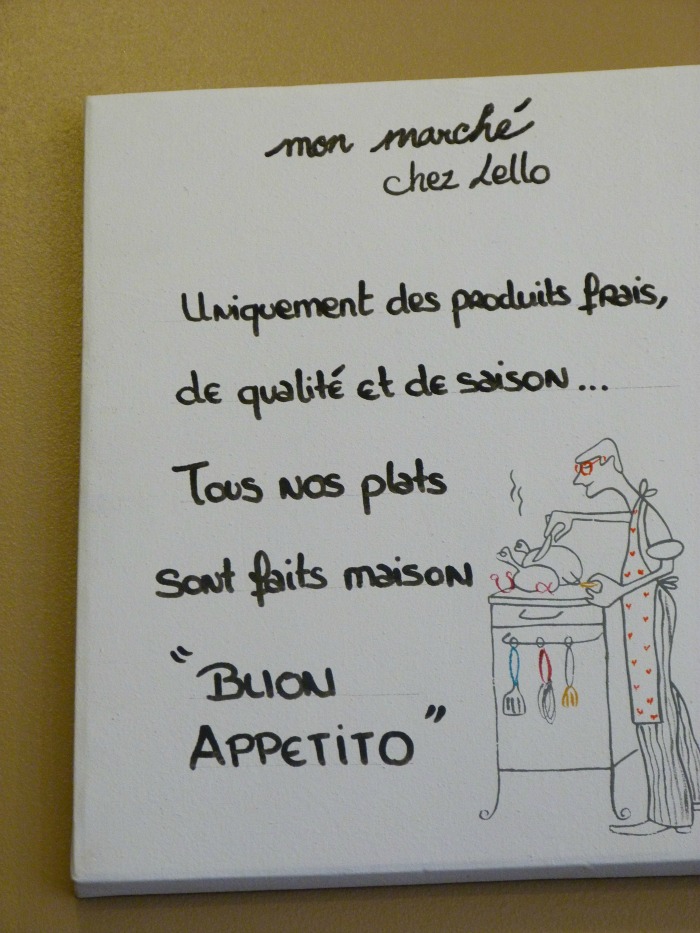 mon marché
chez Lello
Uniquement des produits frais,
de qualité et de saison...
Tous nos plats
sont faits maison
"BUON
APPETITO"